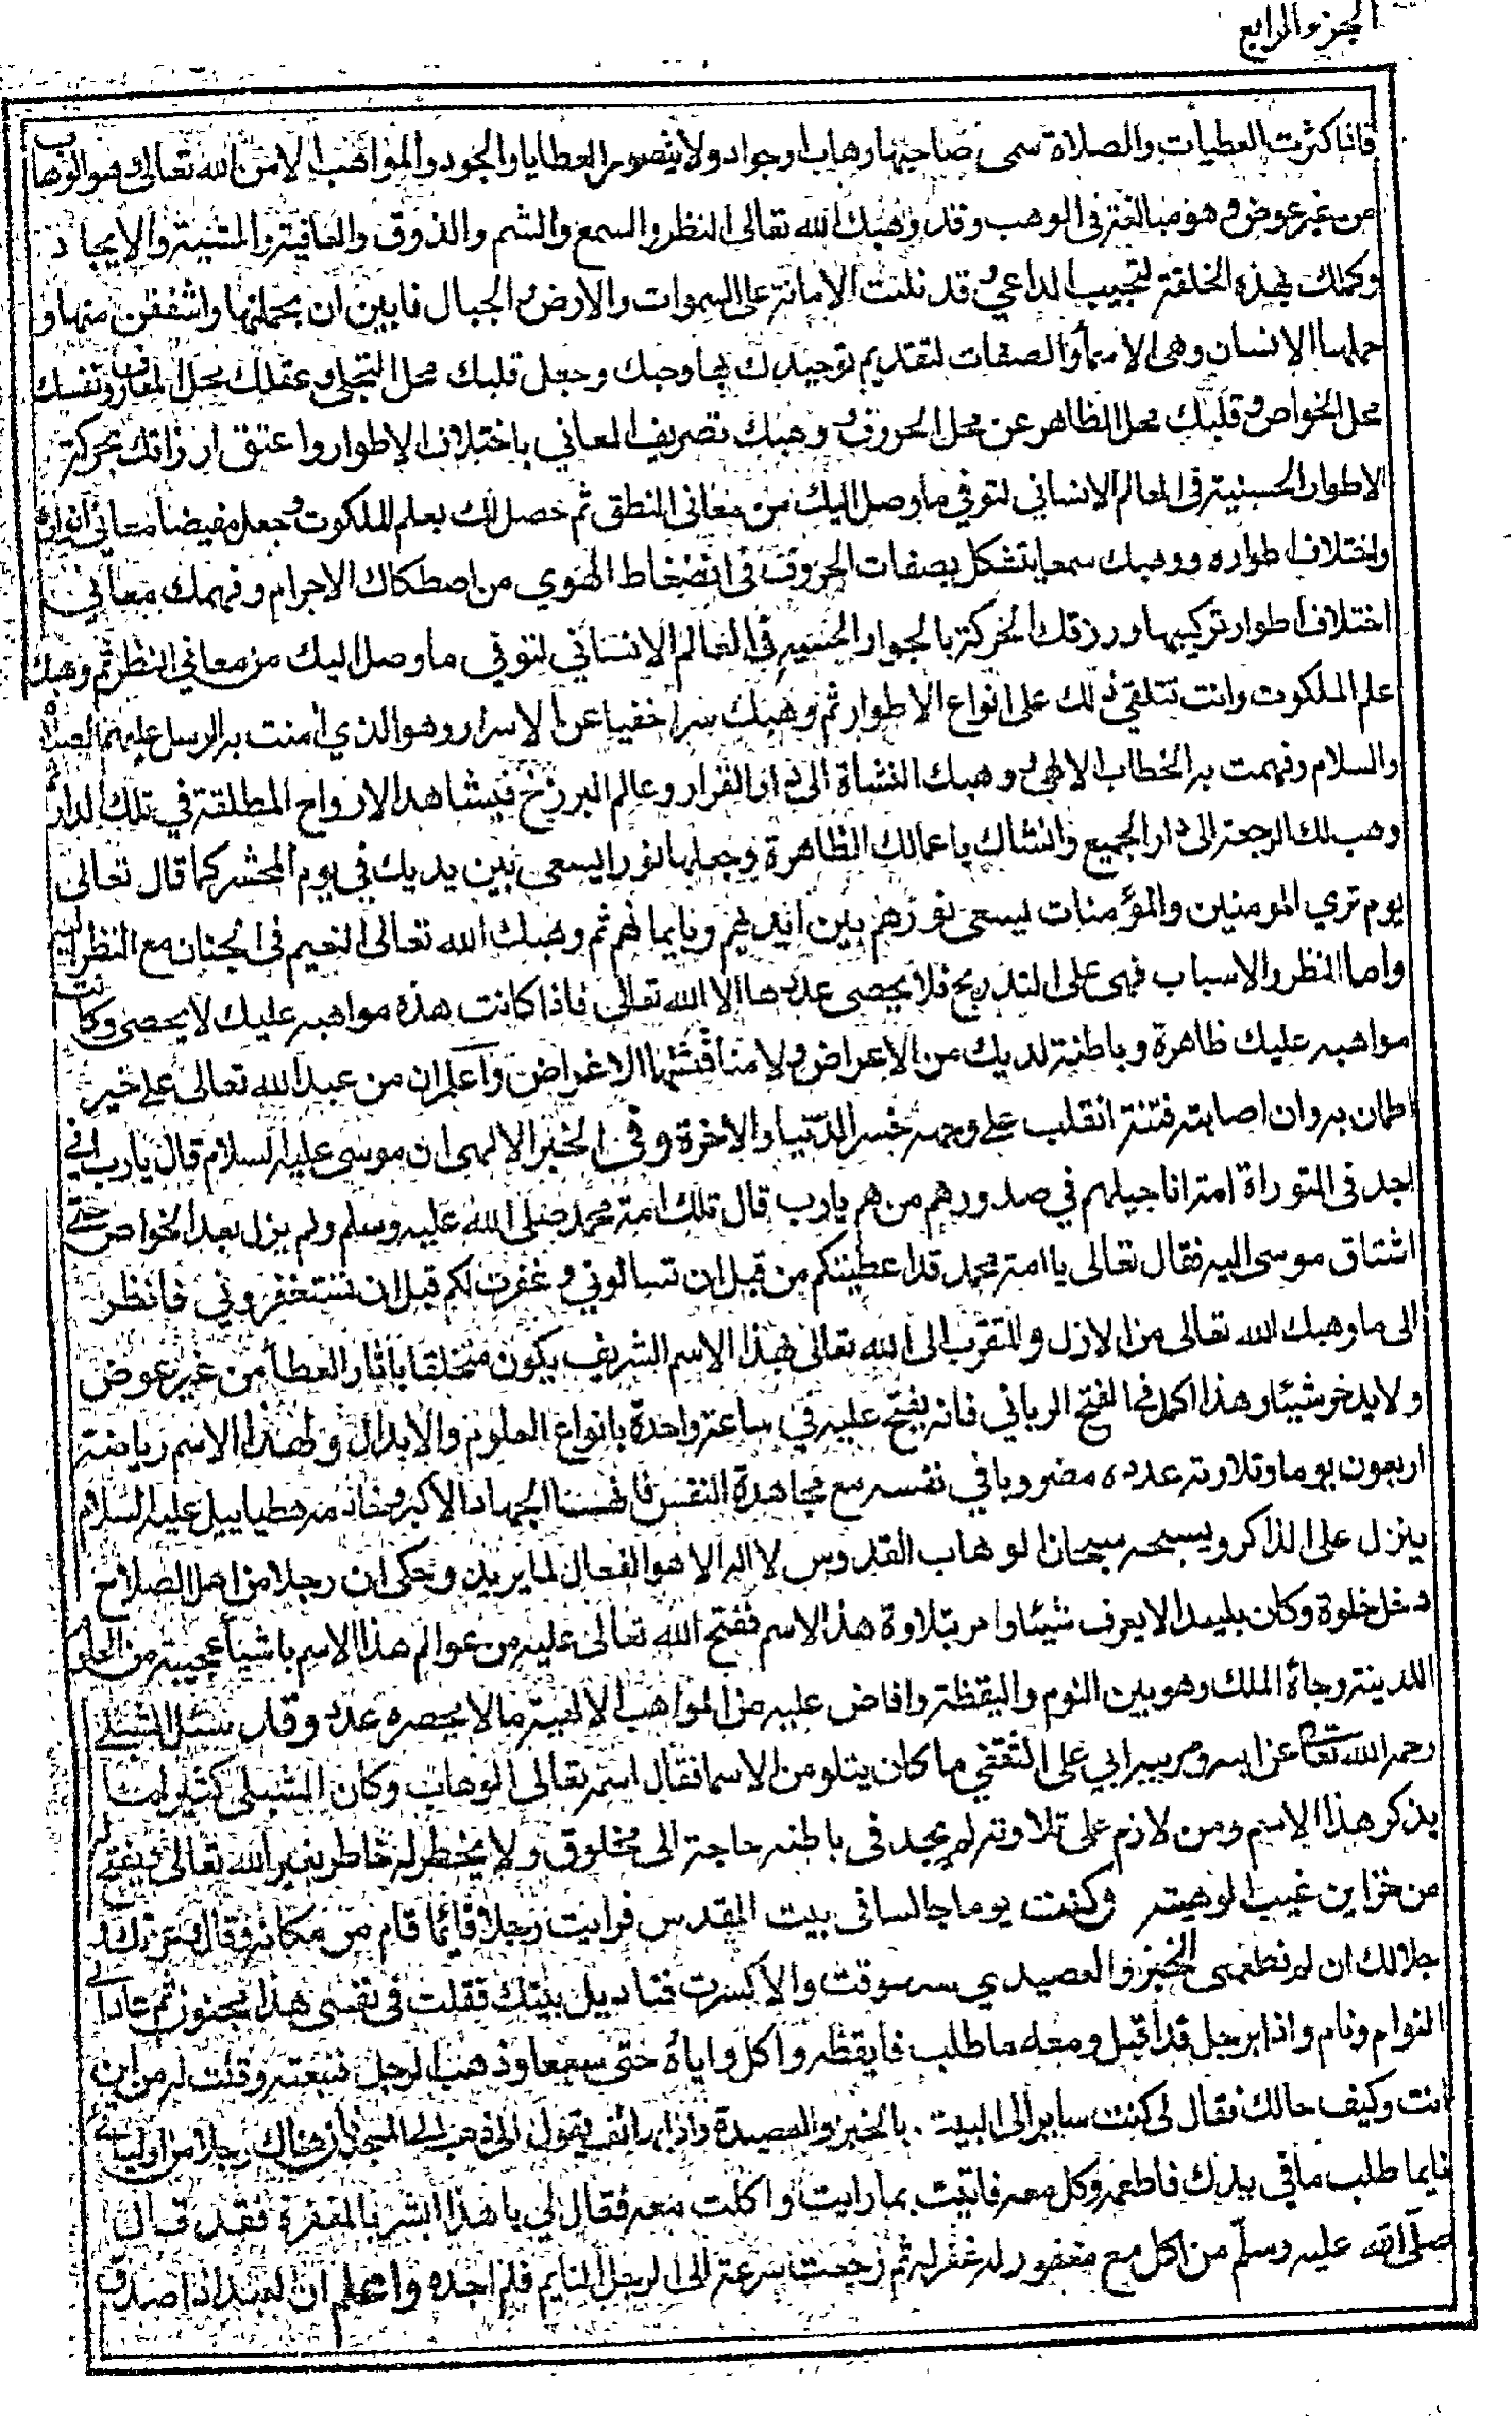 الجزء الرابع
فاذا كثرت العطيات والصلاة سمى صاحبها وهابا وجوادا ولا يتصور العطايا والجود والمواهب الا من الله تعالى وهو الوهاب
من غير عوض وهو مبالغة فى الوهب وقد وهبك الله تعالى النظر والسمع والشم والذوق والعافية والمشية والايجاد
وكملك بهذه الخلقة لتجيب الداعى قد نلت الامانة على السموات والارض والجبال فابين ان يحملنها واشفقن منها و
حملها الانسان وهى الاسماء والصفات لتقديم توحيدك بها وحبك وجعل قلبك محل التجلى وعقلك محل المعارف ونفسك
محل الخواص وقلبك محل الظاهر عن محل الحروف وهبك تصريف المعاني باختلاف الاطوار واعتق ارزاقك بحركة
الاطوار الحسنية فى العالم الانساني لتوفي ما وصل اليك من معانى النطق ثم حصل لك بعلم الملكوت وجعل مفيضا معاني
واختلاف اطواره ووهبك سمعا يتشكل بصفات الحروف فى انضغاط الهوي من اصطكاك الاجرام وفهمك معاني
اختلاف اطوار تركيبها ورزقك الحركة بالجوار الحسنيه فى العالم الانساني لتوفي ما وصل اليك من معاني النظر ثم وهبك
علم الملكوت وانت تتلقي ذلك على انواع الاطوار ثم وهبك سرا خفيا عن الاسرار وهو الذي امنت به الرسل عليهم الصلاة
والسلام وفهمت به الخطاب الالهى وهبك النشاة الى دار القرار وعالم البرزخ فيشاهد الارواح المطلقة في تلك الدار
وهب لك الرجعة الى دار الجميع وانشاك باعمالك الظاهرة وجعلها نورا يسعى بين يديك في يوم المحشر كما قال تعالى
يوم تري المومنين والمؤمنات يسعى نورهم بين ايديهم وبايمانهم ثم وهبك الله تعالى النعيم فى الجنان مع النظر اليه
واما النظر والاسباب فهى على التدريج فلا يحصى عددها الا الله تعالى فاذا كانت هذه مواهبه عليك لا يحصى وكانت
مواهبه عليك ظاهرة وباطنة لديك من الاعراض ولا مناقشتها الاغراض واعلم ان من عبد الله تعالى على خير
اطمان به وان اصابته فتنة انقلب على وجهه خسر الدنيا والاخرة وفى الخبر الالهى ان موسى عليه السلام قال يارب اني
اجد فى التوراة امة اناجيلهم في صدورهم من هم يارب قال تلك امة محمد صلى الله عليه وسلم ولم يزل بعد الخواص حتى
اشتاق موسى اليه فقال تعالى يا امة محمد قد اعطيتكم من قبل ان تسالوني وغفرت لكم قبل ان تستغفروني فانظر
الى ما وهبك الله تعالى من الازل والمتقرب الى الله تعالى بهذا الاسم الشريف يكون متخلقا باثار العطا من غير عوض
ولا يدخر شيئا وهذا اكمل فى الفتح الرباني فانه يفتح عليه في ساعة واحدة بانواع العلوم والابدال ولهذا الاسم رياضة
اربعون يوما وتلاوته عدده مضروبا في نفسه مع مجاهدة النفس فانهـا الجهاد الاكبر وخادمه هطياييل عليه السلام
ينزل على الذاكر ويسبحه سبحان الوهاب القدوس لا اله الا هو الفعال لما يريد وحكى ان رجلا من اهل الصلاح
دخل خلوة وكان بليدا لا يعرف شيئا وامر بتلاوة هذا الاسم ففتح الله تعالى عليه من عوالم هذا الاسم باشيا عجيبة من العلوم
اللدينة وجاه الملك وهو بين النوم واليقظة وافاض عليه من المواهب الالهية ما لا يحصره عدد وقد سئل الشبلى
رحمه الله تعالى عن ابيه ومربيه ابي على الثقفي ما كان يتلو من الاسما فقال اسمه تعالى الوهاب وكان الشبلى كثيرا ما
يذكر هذا الاسم ومن لازم على تلاوته لم يجد فى باطنه حاجة الى مخلوق ولا يخطر له خاطر بغير الله تعالى ويفتح له
من خزاين غيب الوهيته وكنت يوما جالسا فى بيت المقدس فرايت رجلا قائما قام من مكانه وقال وعزتك و
جلالك ان لم تطعمنى الخبز والعصيدي والا كسرت قناديل بيتك فقلت فى نفسى هذا مجنون ثم عاد الى
النوام ونام واذا برجل قد اقبل ومعه ما طلب فايقظه واكل واياه حتى شبعا وذهب الرجل فتبعته وقلت له من اين
انت وكيف حالك فقال لى كنت ساير الى البيت بالخبز والعصيدة واذا بهاتف يقول لى اذهب الى المسجد فان هناك رجلا من اوليائى
نايما طلب ما فى يدك فاطعمه وكل معه فاتيت بما رايت واكلت معه فقال لي يا هذا ابشر بالمغفرة فقد قال
صلى الله عليه وسلم من اكل مع مغفور له غفر له ثم رجعت بسرعة الى الرجل النايم فلم اجده واعلم ان العبد اذا صدق